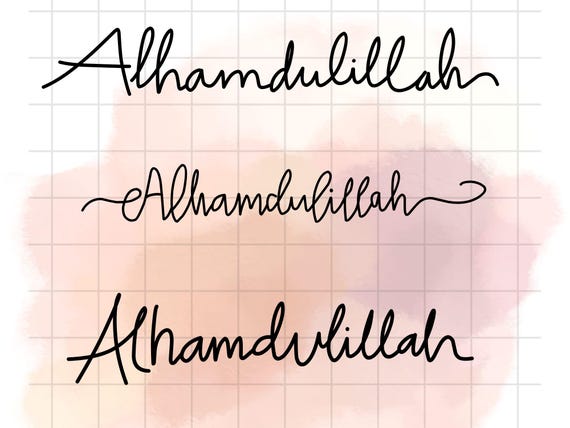 Alhamdulillah
Alhamdulillah
Alhamdulillah